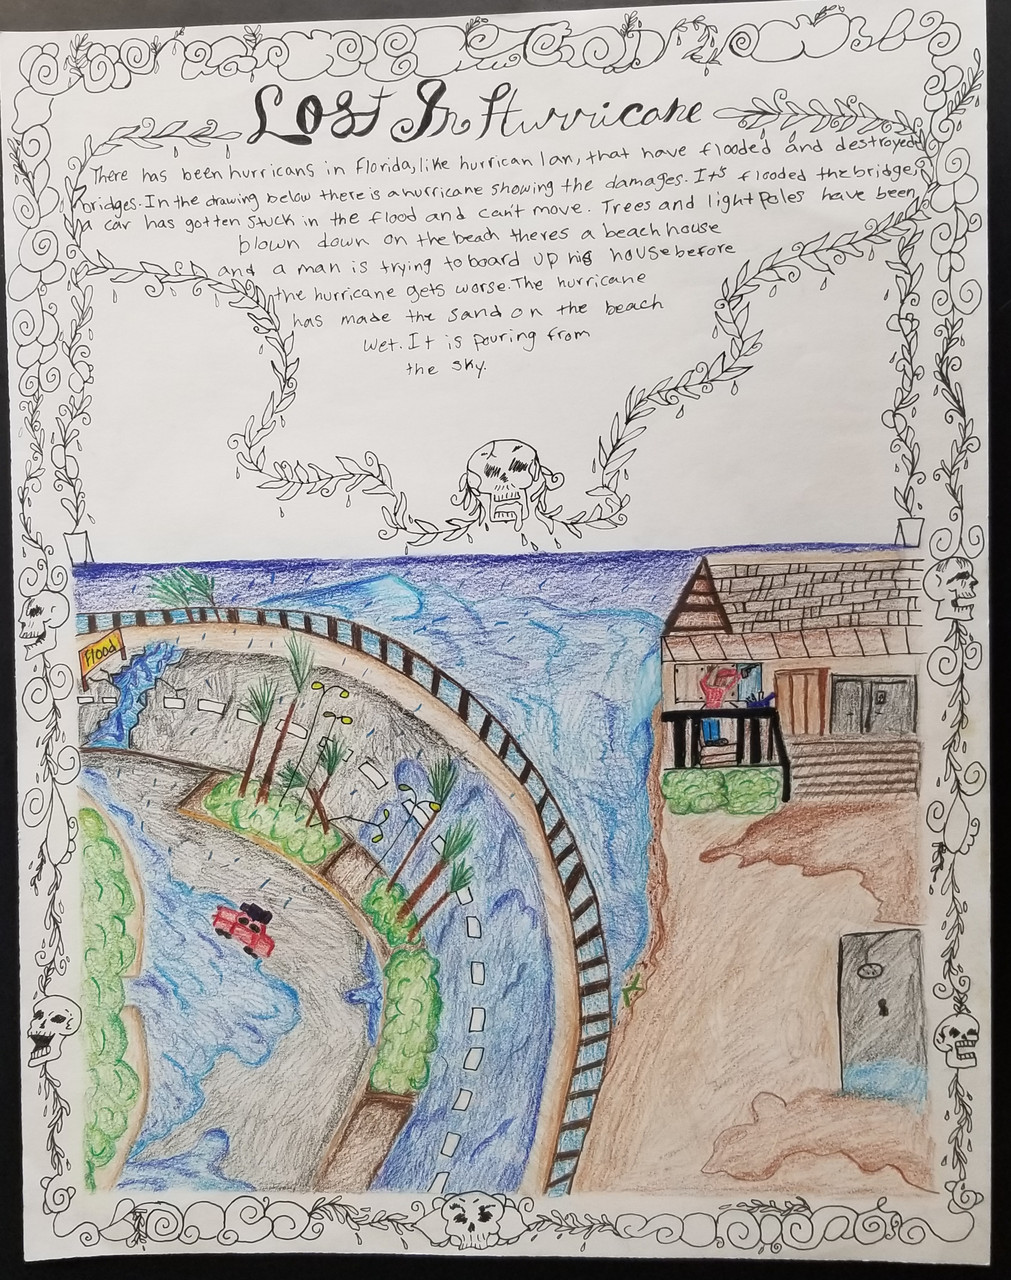 Lost In Hurricane
There has been hurricans in Florida, like hurrican Ian, that have flooded and destroyed
bridges. In the drawing below there is a hurricane showing the damages. It's flooded the bridge,
a car has gotten stuck in the flood and can't move. Trees and light poles have been
blown down on the beach theres a beach house
and a man is trying to board up his house before
the hurricane gets worse. The hurricane
has made the sand on the beach
wet. It is pouring from
the sky.
Flood